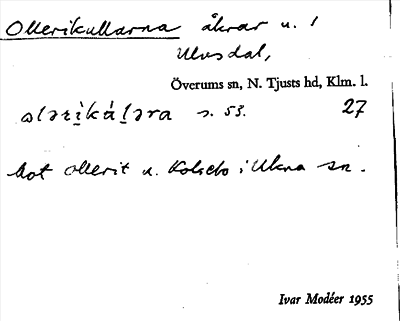 Ollerikullarna åkrar u. 1
Ulvsdal,
Överums sn, N. Tjusts hd, Klm. l.
s. 53. 27
hot Ollerit u. i Ukna sn.
Ivar Modéer 1955